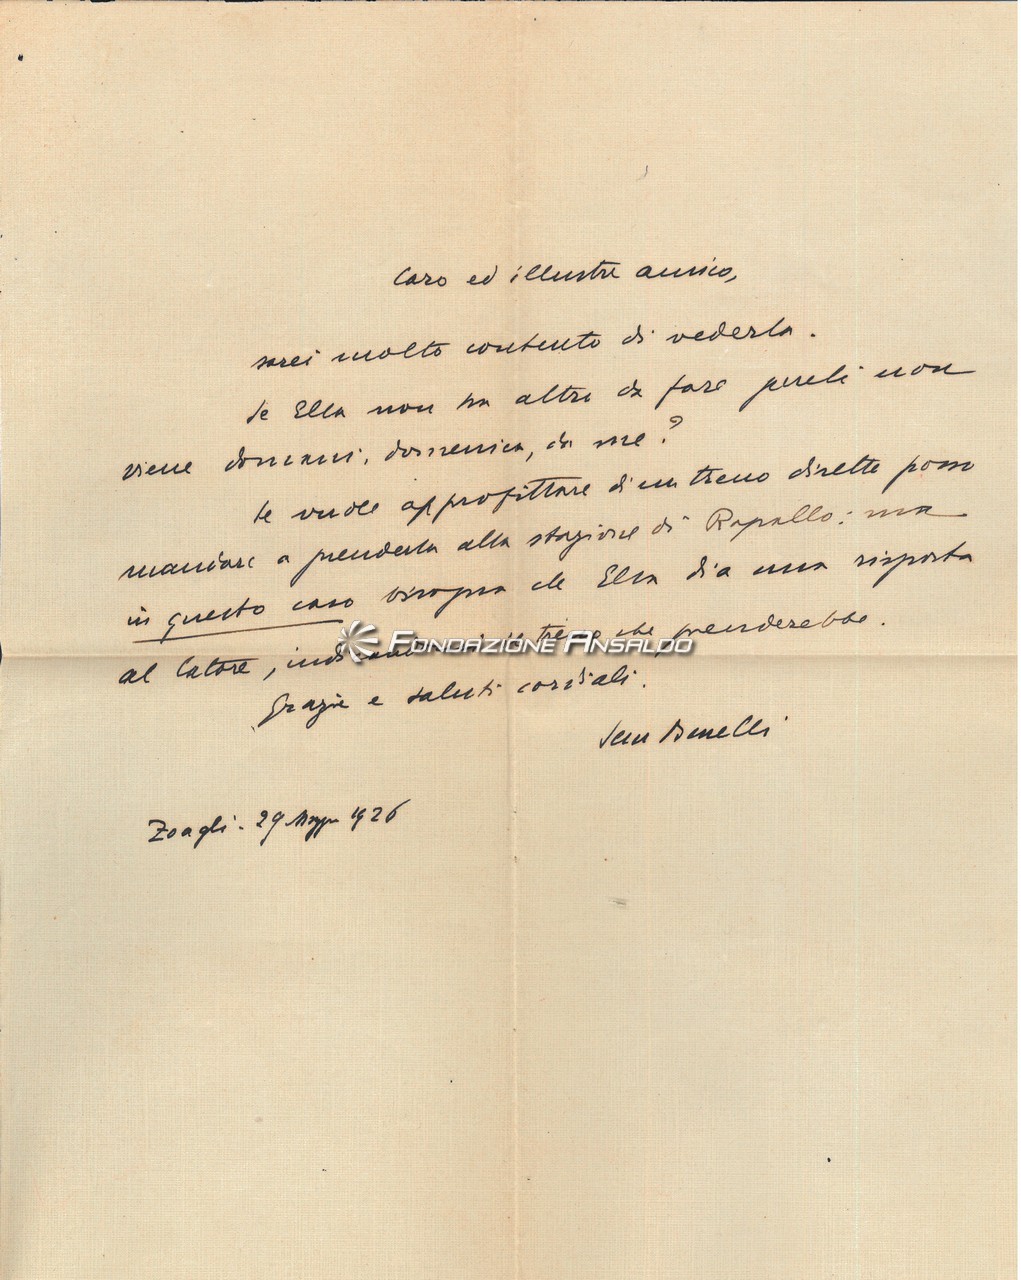 Caro ed illustre amico,
sarei molto contento di vederla.
Se Ella non ha altro da fare perché non
viene domani, domenica, da me?
Se vuole approfittare di un treno diretto posso
mandare a prenderla alla stazione di Rapallo: ma
in questo caso bisogna che Ella dia una risposta
al latore, indicando il treno che prenderebbe.
FONDAZIONE ANSALDO
Grazie e saluti cordiali.
Sem Benelli
Zoagli - 29 Maggio 1926